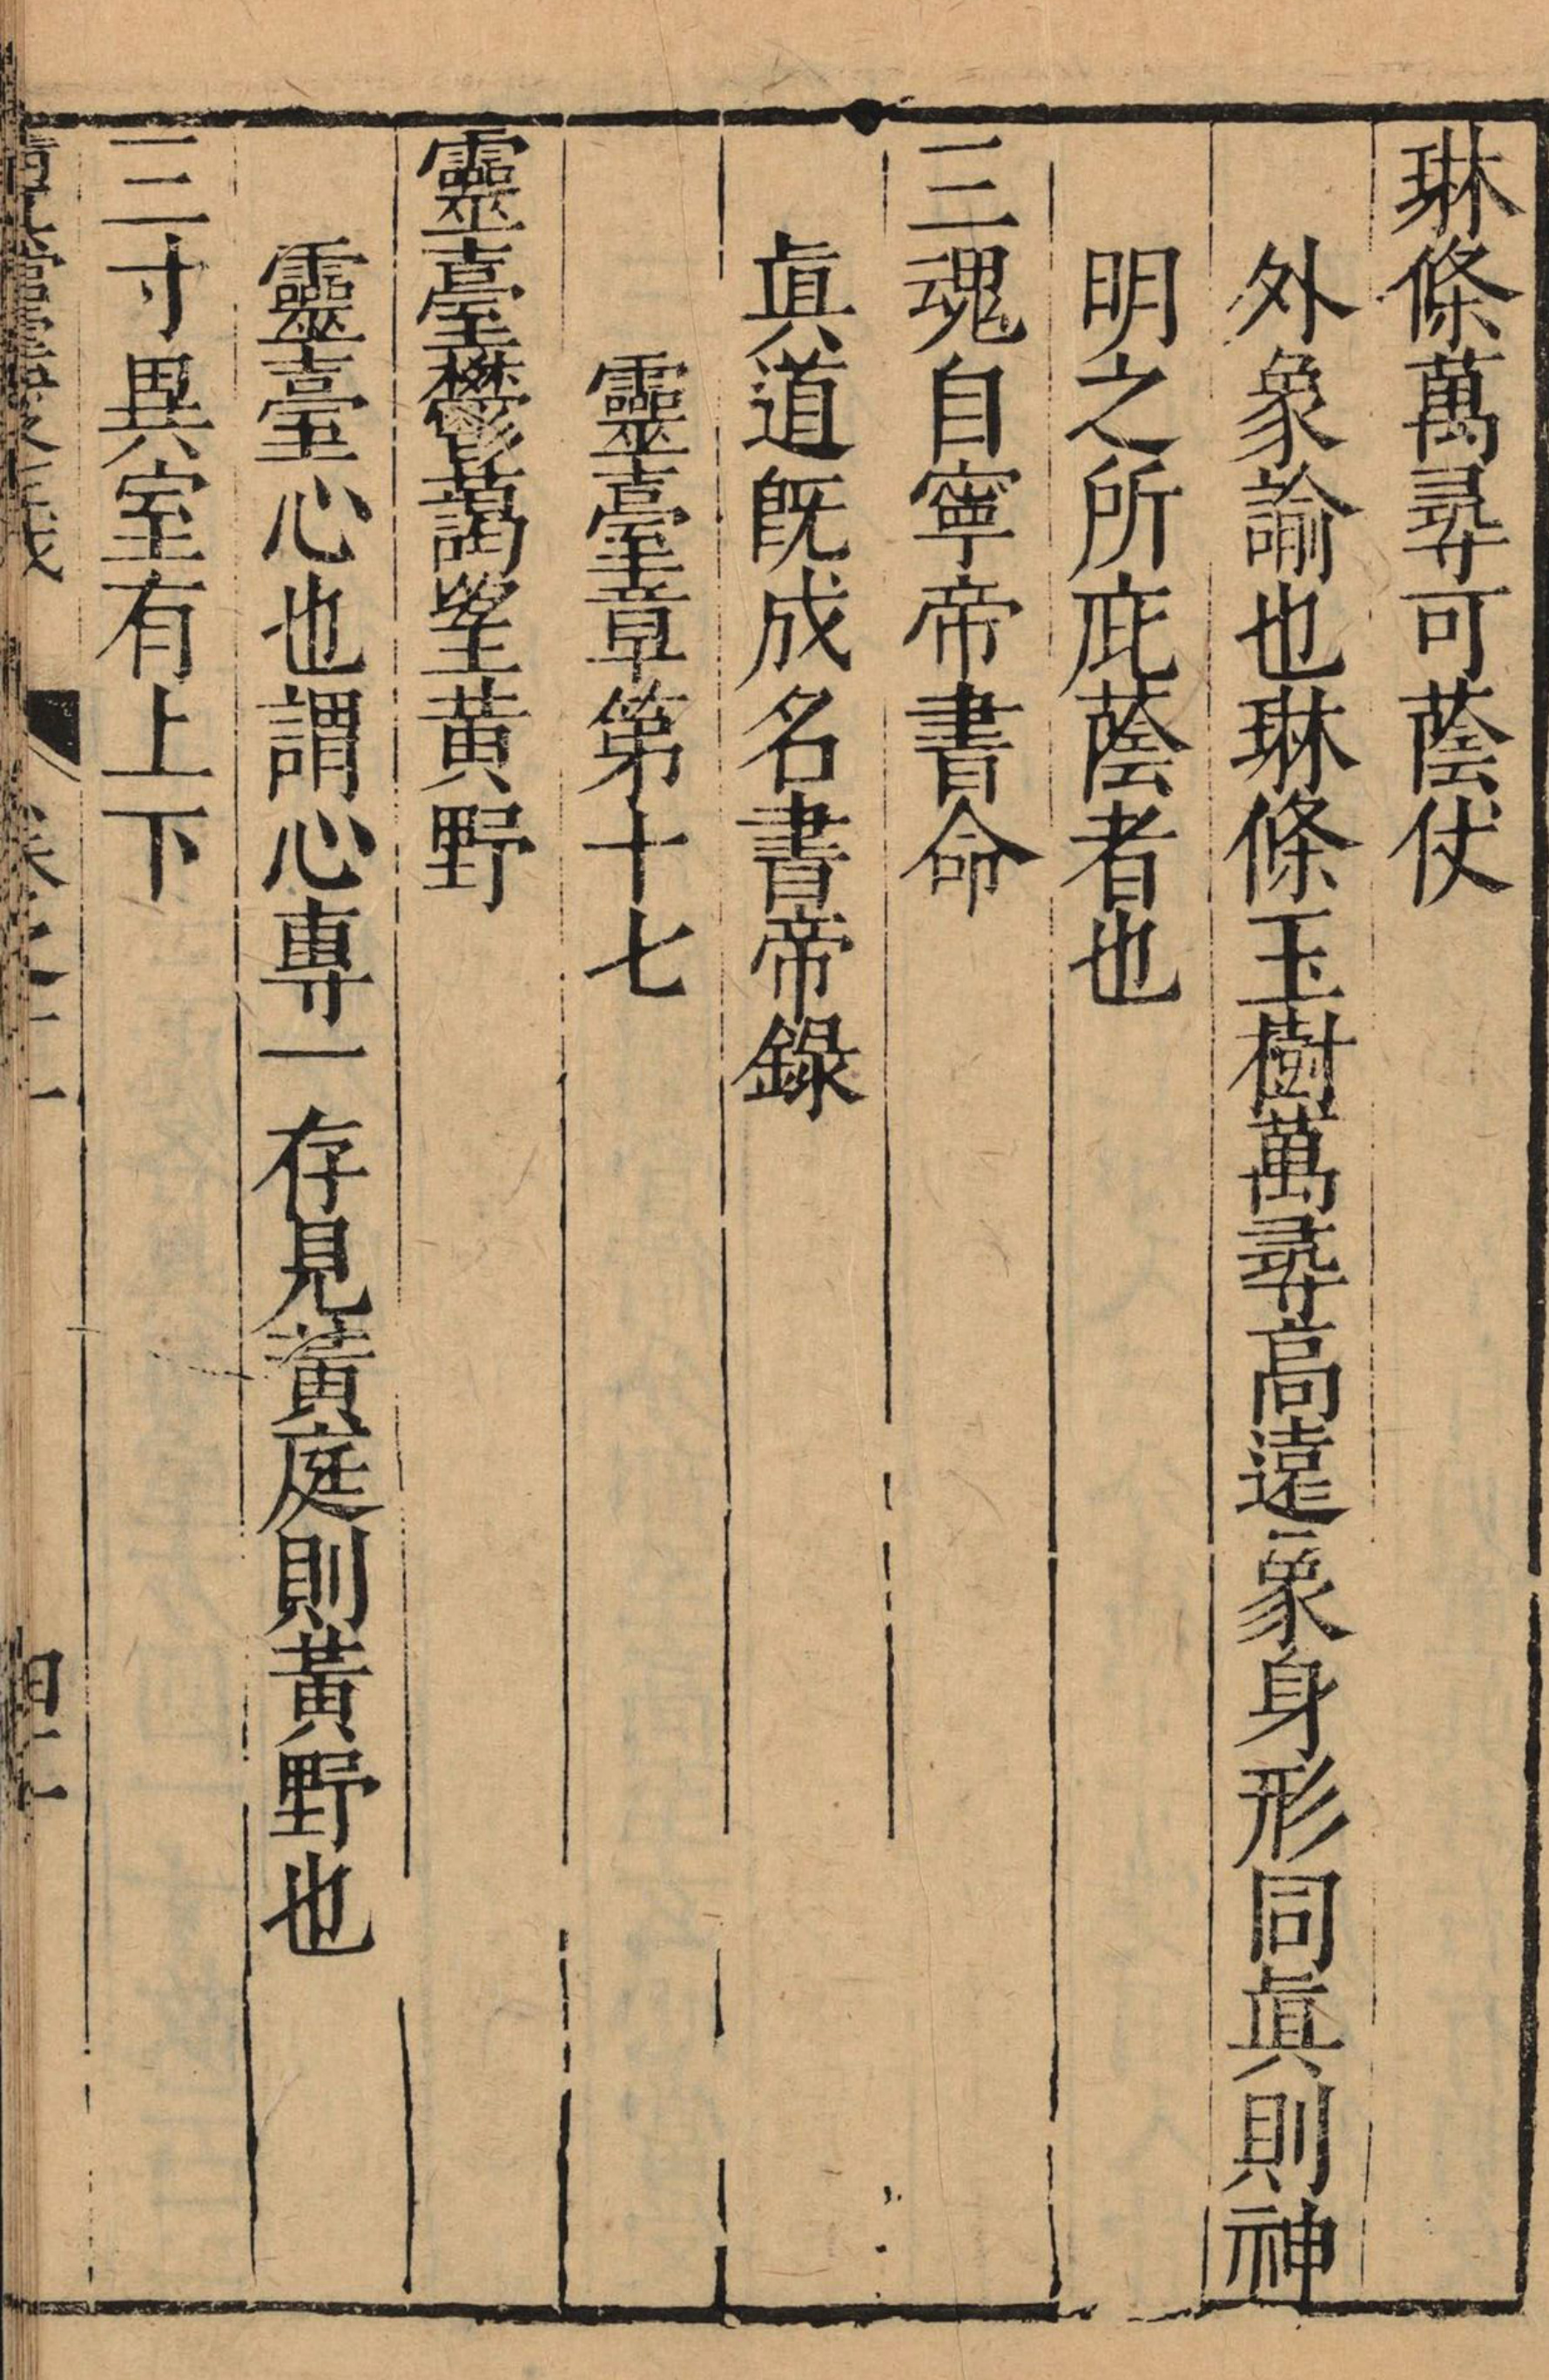 琳條萬尋可蔭仗
外象諭也琳條玉樹萬尋高遠象身形同眞則神
明之所庇蔭者也
三魂自寧帝書命
眞道既成名書帝錄
靈臺章第十七
靈臺鬱藹望黃野
靈臺心也謂心專一存見黃庭則黃野也
三寸異室有上下